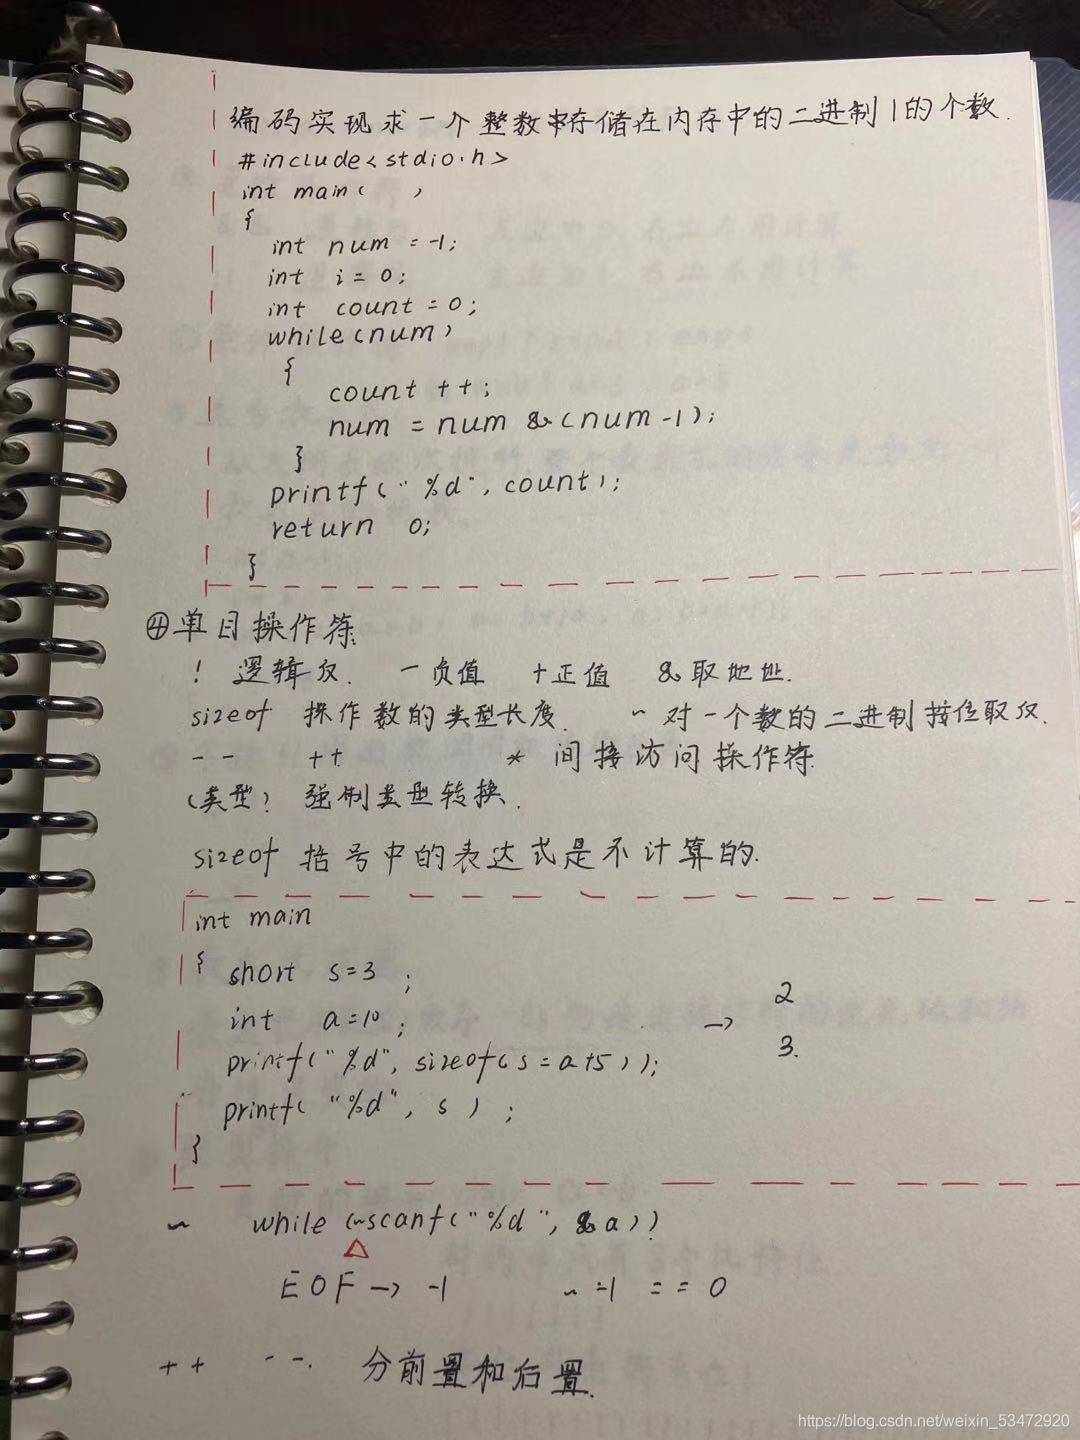 编码实现求一个整数存储在内存中的二进制1的个数.
#include<stdio.h>
int main( )
{
int num = -1;
int i = 0;
int count = 0;
while(num)
{
count ++;
num = num &(num-1);
}
printf("%d", count);
return 0;
}
④单目操作符
! 逻辑反. - 负值 + 正值 & 取地址.
sizeof 操作数的类型长度. ~ 对一个数的二进制按位取反.
-- ++ * 间接访问操作符.
(类型) 强制类型转换.
sizeof 括号中的表达式是不计算的.
int main
{ short s=3 ;
int a=10 ;
printf("%d", sizeof(s=a+5));
printf("%d", s) ;
}
→ 2
3.
~ while (~scanf("%d", &a))
EOF → -1 ~ -1 == 0
++ --. 分前置和后置.
https://blog.csdn.net/weixin_53472920